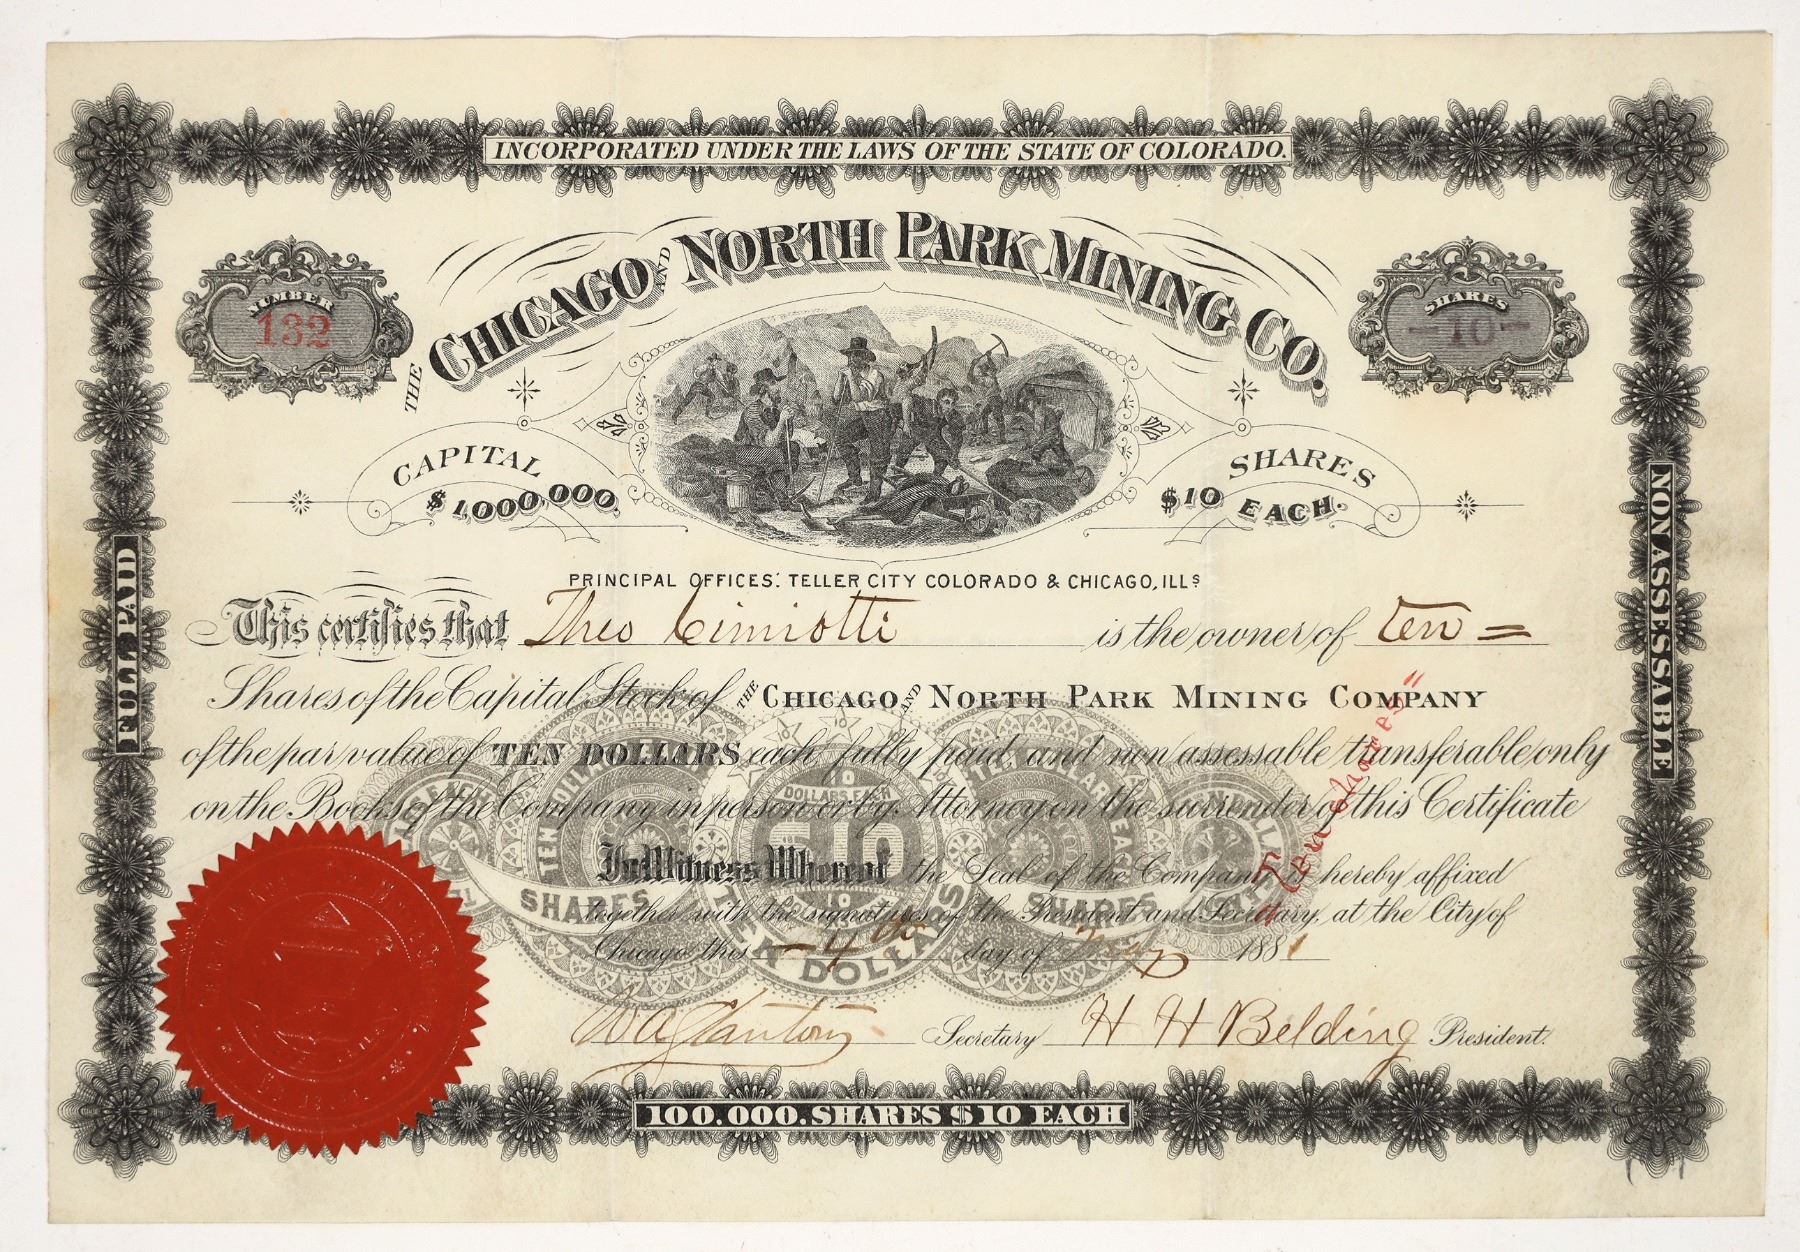 INCORPORATED UNDER THE LAWS OF THE STATE OF COLORADO.
NUMBER
132
THE CHICAGO AND NORTH PARK MINING CO.
SHARES
-10-
CAPITAL
$1,000,000.
SHARES
$10 EACH.
PRINCIPAL OFFICES: TELLER CITY COLORADO & CHICAGO, ILLs
This certifies that Theo Cimiotti is the owner of ten =
Shares of the Capital Stock of THE CHICAGO AND NORTH PARK MINING COMPANY
of the par value of TEN DOLLARS each, fully paid, and non assessable transferable only
on the Books of the Company in person or by Attorney on the surrender of this Certificate
In Witness Whereof the Seal of the Company is hereby affixed
together with the signatures of the President and Secretary, at the City of
Chicago this - 4th day of May 1881
Secretary H H Belding President.
"Ten shares"
10
DOLLARS EACH
10
10
SHARES
SHARES
TEN DOLLARS
FULL PAID
NON ASSESSABLE
100.000. SHARES $10 EACH